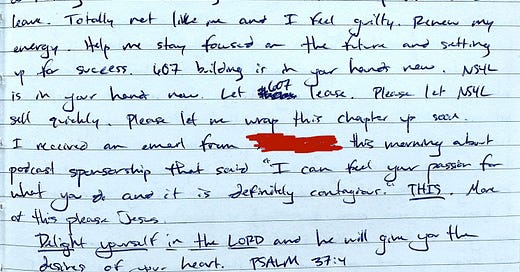 leave. Totally not like me and I feel guilty. Renew my
energy. Help me stay focused on the future and setting
up for success. 607 building is in your hands now. NSYL
is in your hands now. Let 607 lease. Please let NSYL
sell quickly. Please let me wrap this chapter up soon.
I received an email from this morning about
podcast sponsorship that said "I can feel your passion for
what you do and it is definitely contagious." THIS. More
of this please Jesus.
Delight yourself in the LORD and he will give you the
desires of your heart. PSALM 37:4